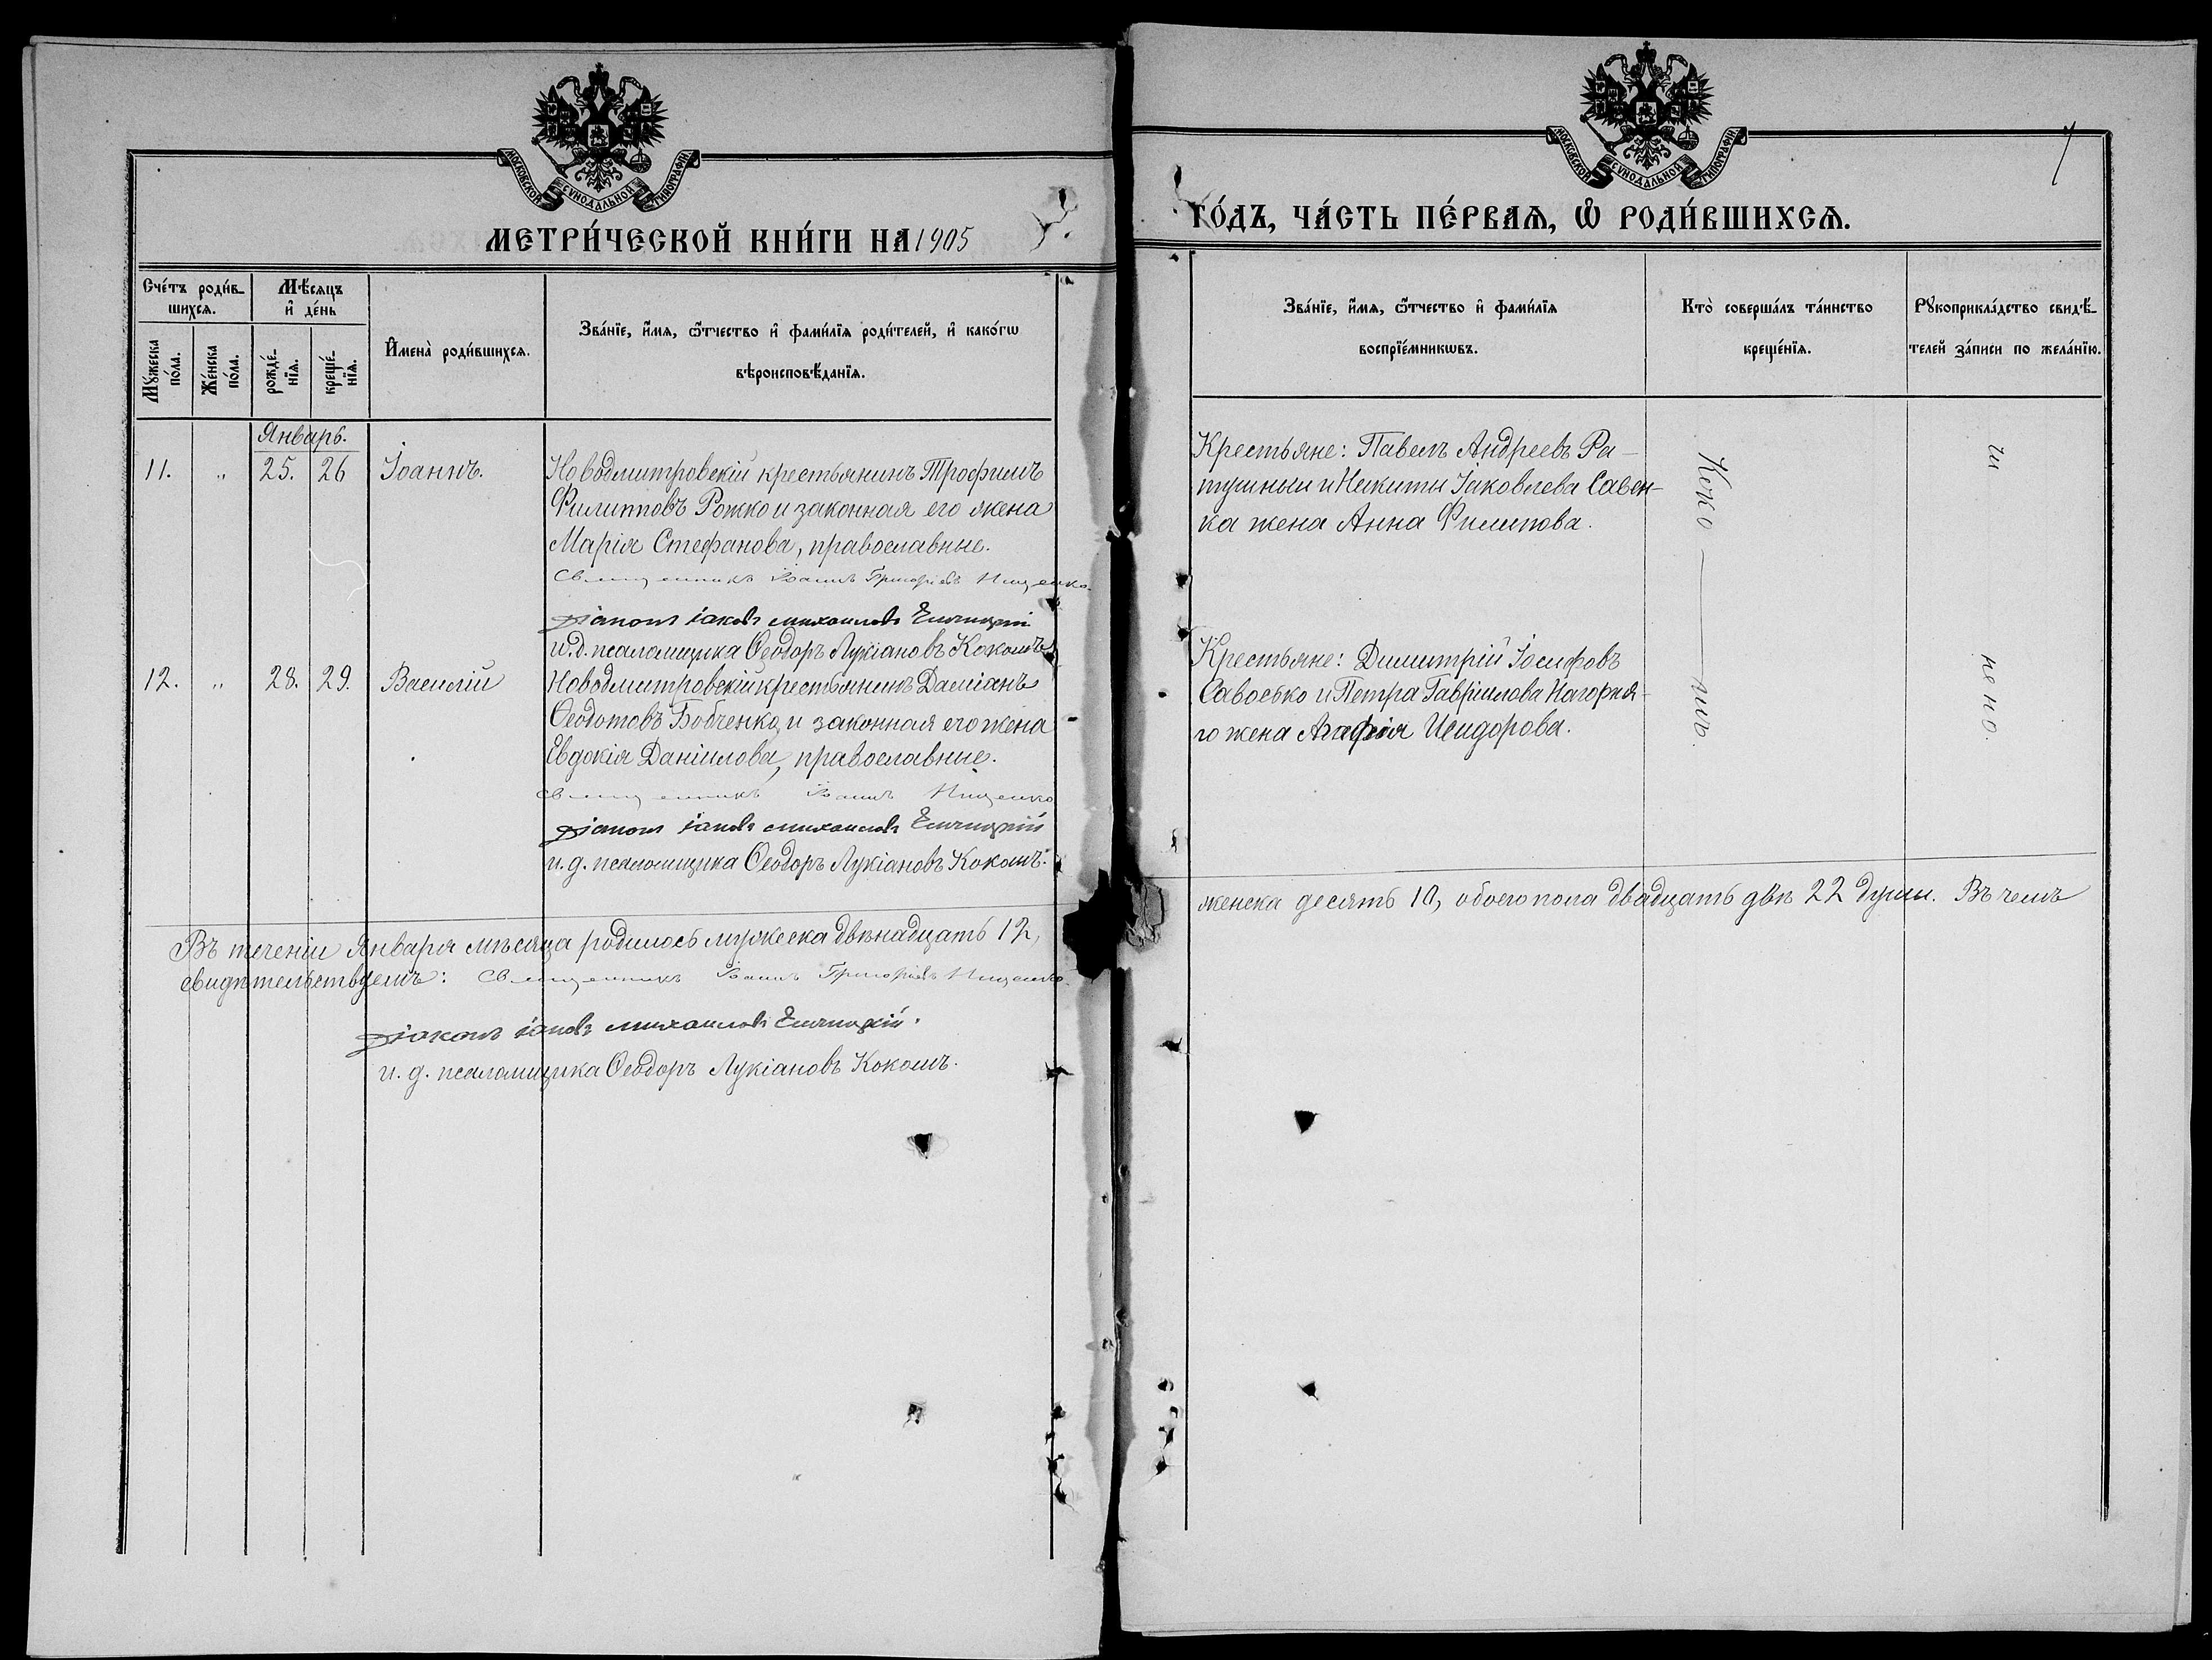 МОСКОВСКОЙ СѴНОДАЛЬНОЙ ТИПОГРАФІИ
МЕТРИ́ЧЕСКОЙ КНИ́ГИ НА 1905
Сче́тъ роди́в-
шихся.
Мѣ́сяцъ
и҆ де́нь
Мꙋ́жеска
по́ла.
Же́нска
по́ла.
рожде́-
нїѧ.
креще́-
нїѧ.
И҆мена̀ роди́вшихсѧ.
Зва́нїе, и҆́мѧ, ѻ҆́тчество и҆ фами́лїѧ роди́телей, и҆ како́гѡ
вѣроисповѣ́данїѧ.
Январь.
11. „ 25. 26 Іоаннъ.
Новодмитровскій крестьянинъ Трофимъ
Филипповъ Рожко и законная его жена
Марія Стефанова, православные.
Священникъ Іоаннъ Григоріевъ Нищенко.
Діаконъ Іаковъ Михаиловъ
и.д. псаломщика Ѳеодоръ Лукіановъ Кокошъ
12. „ 28. 29. Василій
Новодмитровскій крестьянинъ Даміанъ
Ѳеодотовъ Бобченко, и законная его жена
Евдокія Даніилова, православные.
Священникъ Іоаннъ Нищенко
Діаконъ Іаковъ Михаиловъ
и. д. псаломщика Ѳеодоръ Лукіановъ Кокошъ.
Въ теченіи Января мѣсяца родилось мужеска двѣнадцать 12,
свидѣтельствуемъ: Священникъ Іоаннъ Григоріевъ Нищенко.
Діаконъ Іаковъ Михаиловъ
и. д. псаломщика Ѳеодоръ Лукіановъ Кокошъ.
МОСКОВСКОЙ СѴНОДАЛЬНОЙ ТИПОГРАФІИ
7
ГО́ДЪ, ЧА́СТЬ ПЕ́РВАЯ, Ѡ҆ РОДИ́ВШИХСѦ.
Зва́нїе, и҆́мѧ, ѻ҆́тчество и҆ фами́лїѧ
воспрїе́мникѡвъ.
Кто̀ соверша́лъ та́инство
креще́нїѧ.
Рꙋкоприкла́дство свидѣ́-
телей за́писи по жела́нїю.
Крестьяне: Павелъ Андреевъ Ра-
тушный и Никиты Іаковлева Савен-
ка жена Анна Филипова.
Крестьяне: Димитрій Іосифовъ
Савостко и Петра Гавріилова Нагорня-
го жена Агафія Исидорова.
женска десять 10, обоего пола двадцать двѣ 22 души. Въ чемъ